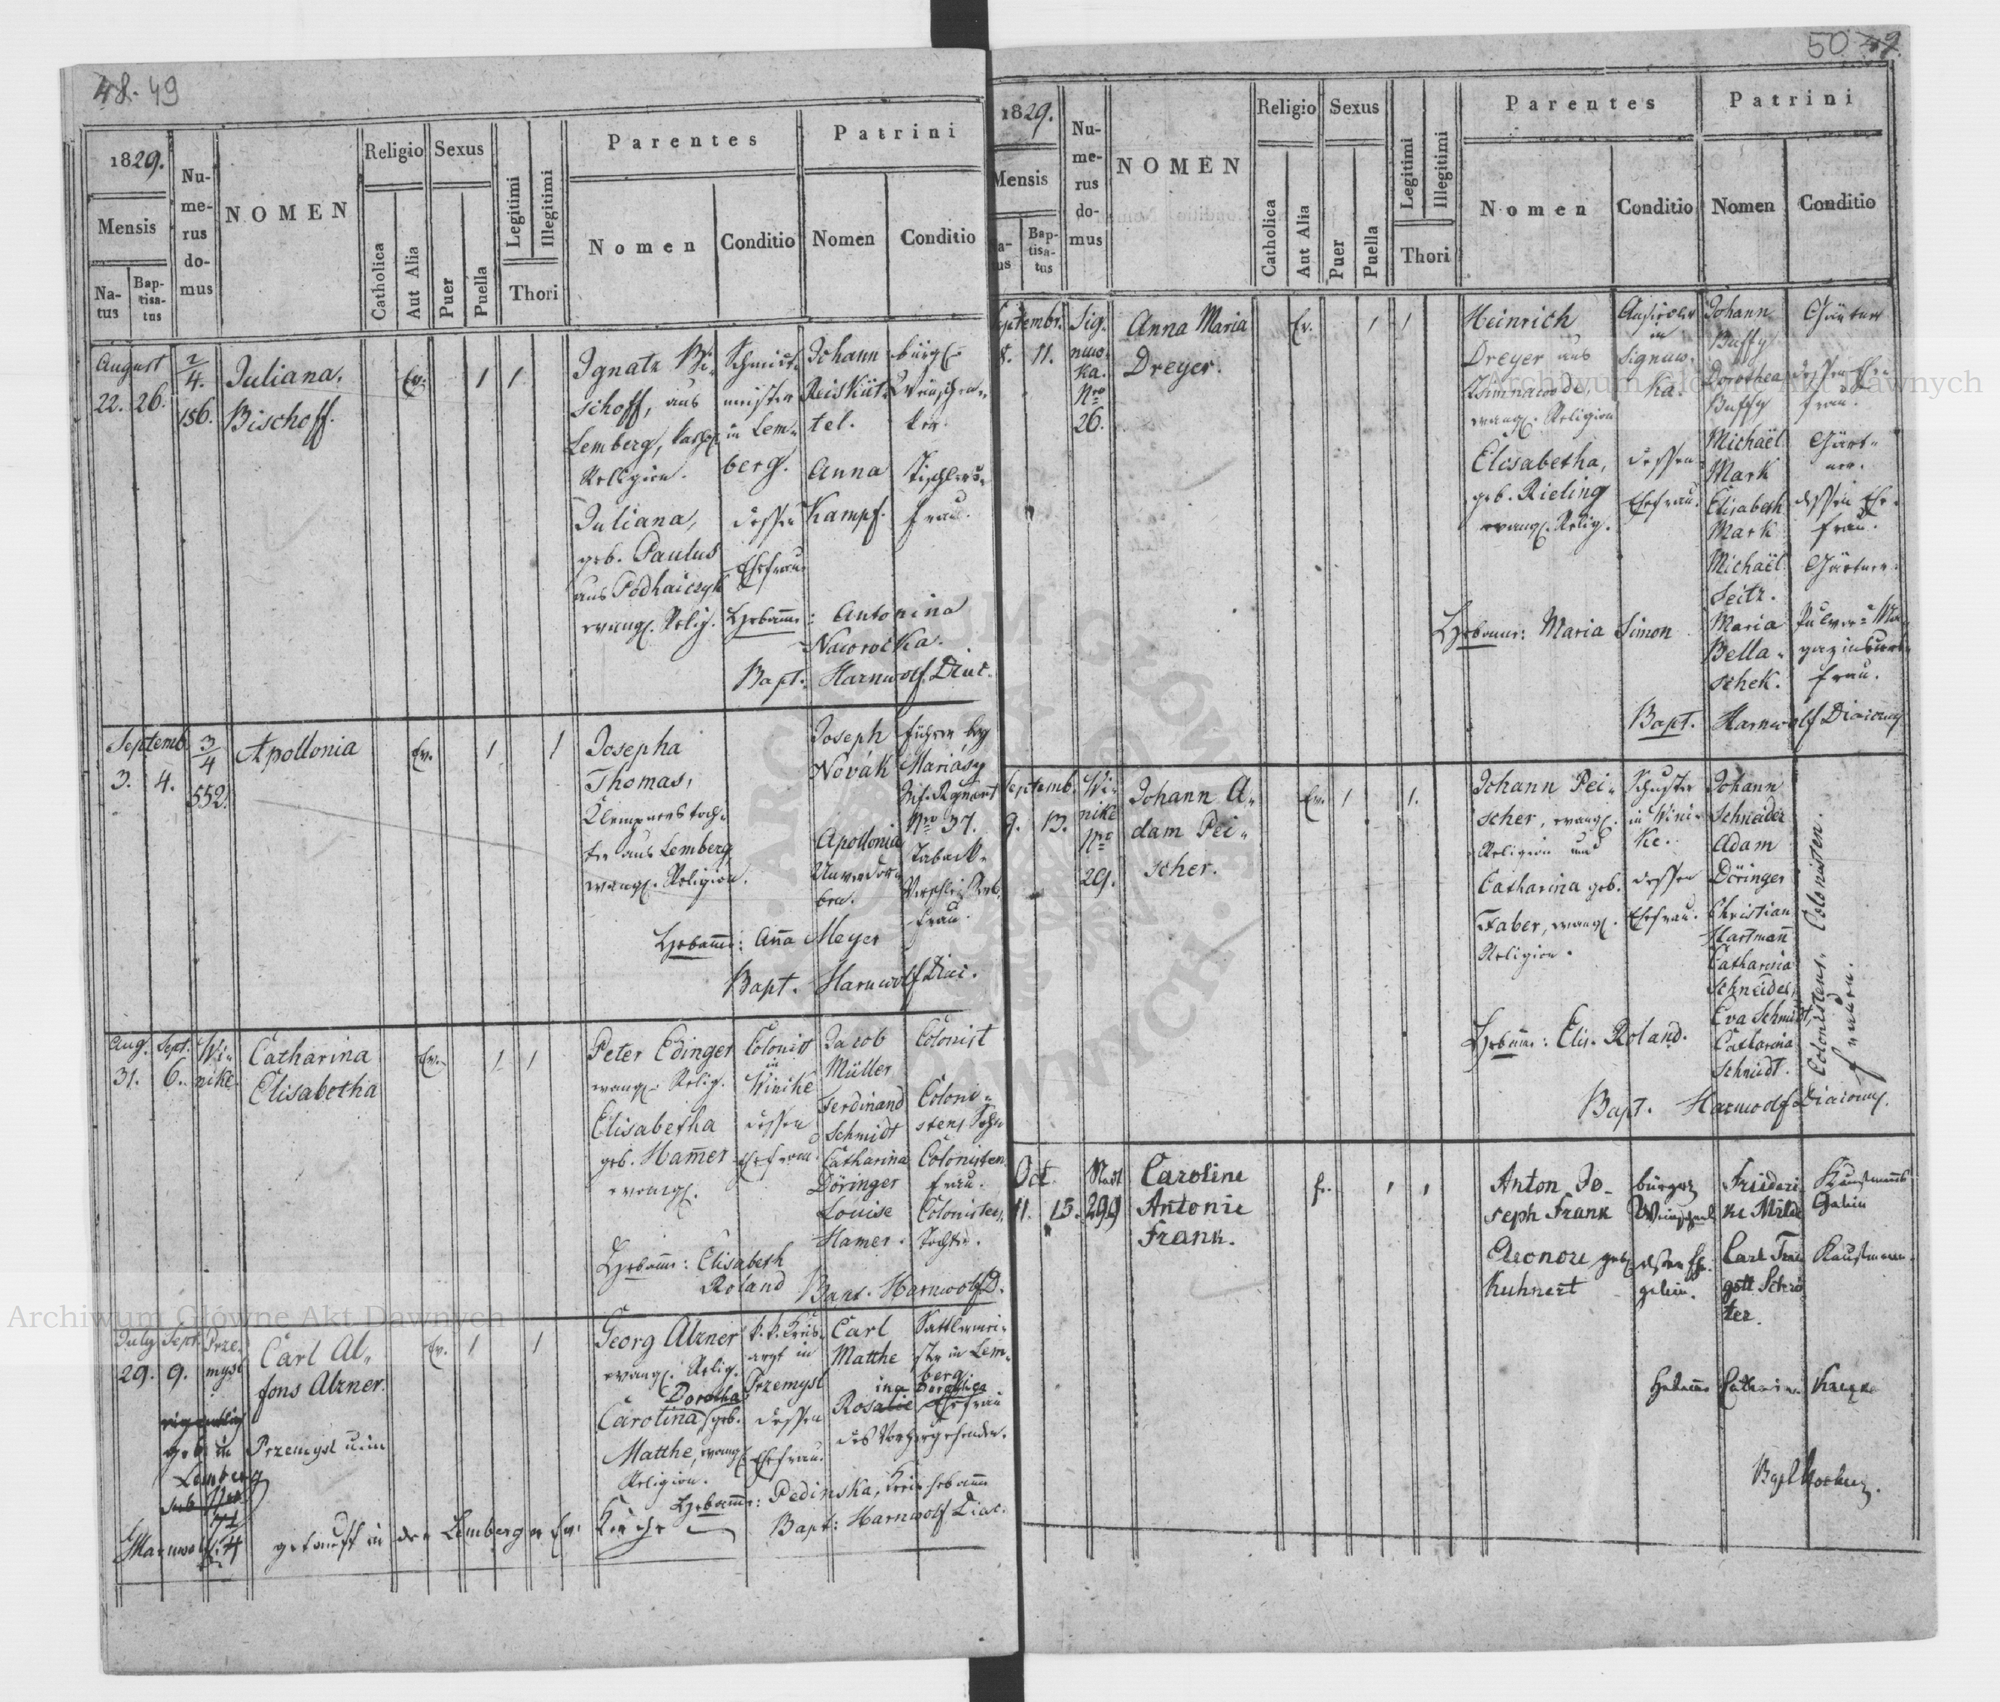 48. 49
1829.
Mensis
Na-
tus
Bap-
tisa-
tus
Nu-
me-
rus
do-
mus
NOMEN
Religio
Catholica
Aut Alia
Sexus
Puer
Puella
Legitimi
Illegitimi
Thori
Parentes
Nomen
Conditio
Patrini
Nomen
Conditio
August
22. 26.
2/4.
156.
Juliana,
Bischoff.
Ev.
1 1
Ignatz Bi-
schoff, aus
Lemberg, kathol.
Religion.
Juliana,
geb. Paulus
aus Podhaiczyk
evang. Relig.
Schmidt-
meister
in Lem-
berg.
dessen
Ehefrau
Johann
Reisküt-
tel.
Anna
Kampf.
bürgl.
Tischlers-
frau.
Hebamme: Antonina
Nawrolka.
Bapt. Harnwolf Diac.
Septemb.
3. 4.
3/4
552.
Apollonia
Ev.
1 1
Josepha
Thomas,
Klempnerstoch-
ter aus Lemberg
evang. Religion.
Joseph
Novák
Apollonia
Unverdor-
ben.
Führer bey
Mariásy
Inf. Regmant
Nro 37.
Taback-
Verschleißers-
frau.
Hebamme: Anna Meyer
Bapt. Harnwolf Diac.
Aug. Sept.
31. 6.
Wi-
nike.
Catharina
Elisabetha
Ev.
1 1
Peter Edinger
evang. Relig.
Elisabetha
geb. Hamer
evang.
Colonist
in
Winike
dessen
Ehefrau.
Jacob
Müller
Ferdinand
Schmidt
Catharina
Döringer
Louise
Hamer.
Colonist
Coloni-
stens Sohn
Colonisten
frau.
Colonisten
Tochter.
Hebamme: Elisabeth
Roland
Bapt. Harnwolf D.
July Sept.
29. 9.
Prze-
mysl
Carl Al-
fons Alzner.
Ev.
1 1
Georg Alzner
evang. Relig.
Dorothea
Carolina geb.
Matthe, evang.
Religion.
k. k. Kreis-
arzt in
Przemysl
dessen
Ehefrau.
Carl
Matthe
Rosalie
Sattlermei-
ster in Lem-
berg.
Ehefrau
des Vorhergehenden.
geb. in Przemysl
Lemberg
Hebamme: Pedinska, Kreishebamme
Bapt: Harnwolf Diac.
Harnwolf
getauft in der Lemberger Ev. Kirche
50 49.
1829.
Mensis
Bap-
tisa-
tus
Nu-
me-
rus
do-
mus
NOMEN
Religio
Catholica
Aut Alia
Sexus
Puer
Puella
Legitimi
Illegitimi
Thori
Parentes
Nomen
Conditio
Patrini
Nomen
Conditio
Septembr.
8. 11.
Sig-
nuw-
ka.
Nro
26.
Anna Maria
Dreyer.
Ev.
1 1
Heinrich
Dreyer aus
evang. Religion
Elisabetha,
geb. Rieling
evang. Relig.
in
Signuw-
ka.
dessen
Ehefrau.
Johann
Buffy
Dorothea
Buffy
Michaël
Mark
Elisabeth
Mark
Michaël
Seitz.
Maria
Bella-
schek.
Gärtner
dessen Ehe-
frau.
Gärt-
ner.
dessen Ehe-
frau.
Gärtner.
Pulver-Ma-
frau.
Hebamme: Maria Simon
Bapt. Harnwolf Diaconus
Septemb.
9. 13.
Wi-
nike
Nro
29.
Johann A-
dam Pei-
scher.
Ev.
1 1.
Johann Pei-
scher, evang.
Religion und
Catharina geb.
Faber, evang.
Religion.
Schuster
in Wini-
ke.
dessen
Ehefrau.
Johann
Schneider
Adam
Döringer
Christian
Hartmann
Catharina
Schneider,
Eva Schmidt,
Catharina
Schmidt.
Colonisten.
Colonistens-
frauen.
Hebamme: Elis. Roland.
Bapt. Harnwolf Diaconus.
Oct.
11. 15.
Stadt
299
Caroline
Antonie
Frank.
1 1
Anton Jo-
seph Frank
Eleonore geb.
Kuhnert
bürger
dessen Ehe-
gattin.
Friederi
ke Milde
Carl Trau
gott Schrö
ter.
Kaufmanns
Gattin
Kaufmann.
Hebamme Catharina
Archiwum Główne Akt Dawnych
Archiwum Główne Akt Dawnych